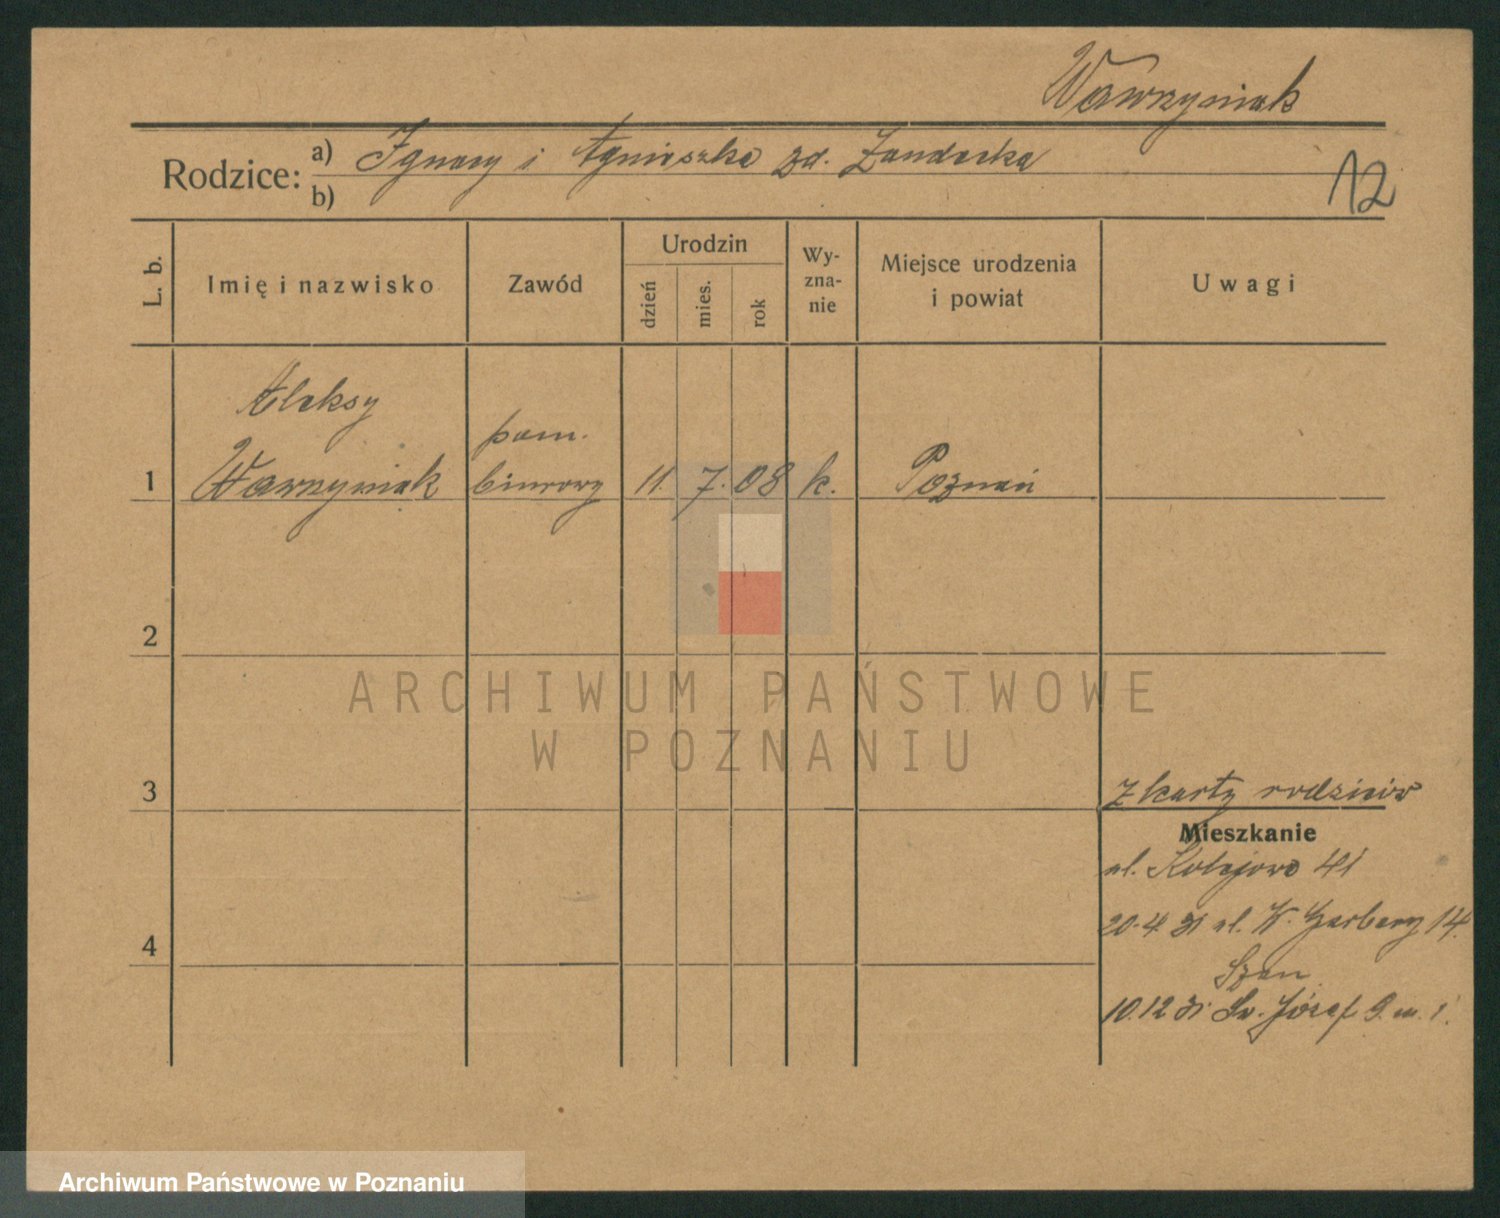 Wawrzyniak
Rodzice: a) Ignacy i Agnieszka zd. Żandecka
b)
12
L. b.
Imię i nazwisko
Zawód
Urodzin
dzień
mies.
rok
Wy-
zna-
nie
Miejsce urodzenia
i powiat
Uwagi
Aleksy
pom.
1 Wawrzyniak biurowy 11. 7. 08 k. Poznań
2
ARCHIWUM PAŃSTWOWE
W POZNANIU
3
z karty rodziców
Mieszkanie
ul. Kolejowa 41
20.4 31 ul. W. Garbary 14.
4
10.12 31 Św. Józef 9 m. 1.
Archiwum Państwowe w Poznaniu